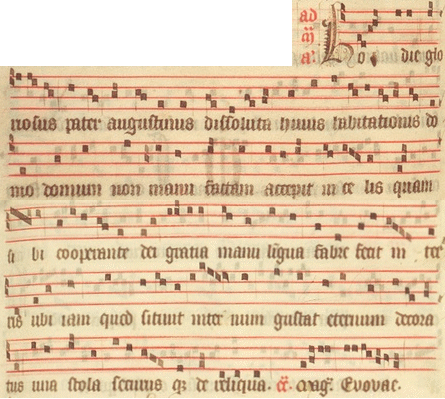 ad
m̄
a'
Ho die glo
riosus pater augustinus dissoluta huius habitationis do
mo domum non manu factam accepit in ce lis quam
si bi cooperante dei gratia manu ligua fabre fecit in ter
ris ubi iam quod sitiuit inter num gustat eternum decora
tus una stola securus qz de reliqua. Mag. Evovae.